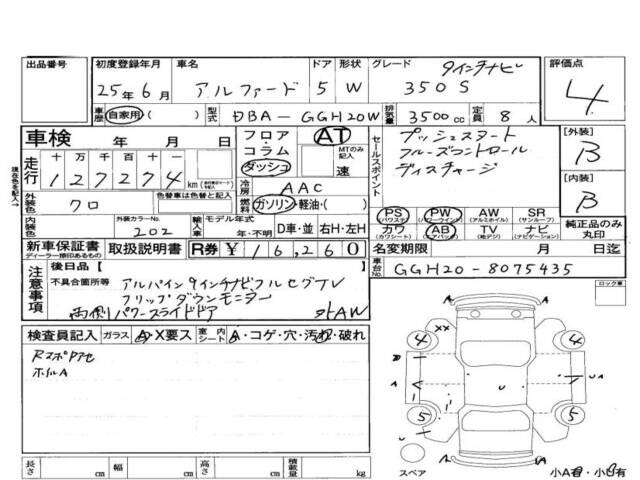 出品番号 初度登録年月 車名 ドア 形状 グレード 9インチナビ 評価点
25年6月 アルファード 5 W 350S 4
車歴 自家用( ) 型式 DBA-GGH20W 排気量 3500cc 定員 8人
車検 年 月 日 フロア AT セールスポイント プッシュスタート [外装]
コラム MTのみ記入 クルーズコントロール B
走行 十万千百十一 ダッシュ 速 ディスチャージ
127274 km 冷房 AAC [内装]
外装色 クロ 色替車は色替と記入 ガソリン・軽油・( ) PS PW AW SR B
(パワステ) (パワーウインド) (アルミホイル) (サンルーフ)
内装色 外装カラーNo. 202 輸入車 モデル年式 D車・並 右H・左H カワ AB TV ナビ 純正品のみ丸印
(カワシート) (エアバッグ) (地デジ) (ナビゲーション)
新車保証書 取扱説明書 R券 ¥16,260 名変期限 月 日迄
ディーラー捺印あるもの
注意事項 後日品( ) 車台No. GGH20-8075435
不具合箇所等 アルパイン9インチナビフルセグTV ロック車
フリップダウンモニター
両側パワースライドドア 社外AW
検査員記入 ガラス A・X要ス 室内シート A・コゲ・穴・汚れ・破れ
Rスポ
ホイルA
A A
4 XX 4
A U UA
5 5
A
長さ cm 幅 cm 高さ cm 積載量 kg スペア 小A有・小B有
現在色を記入→